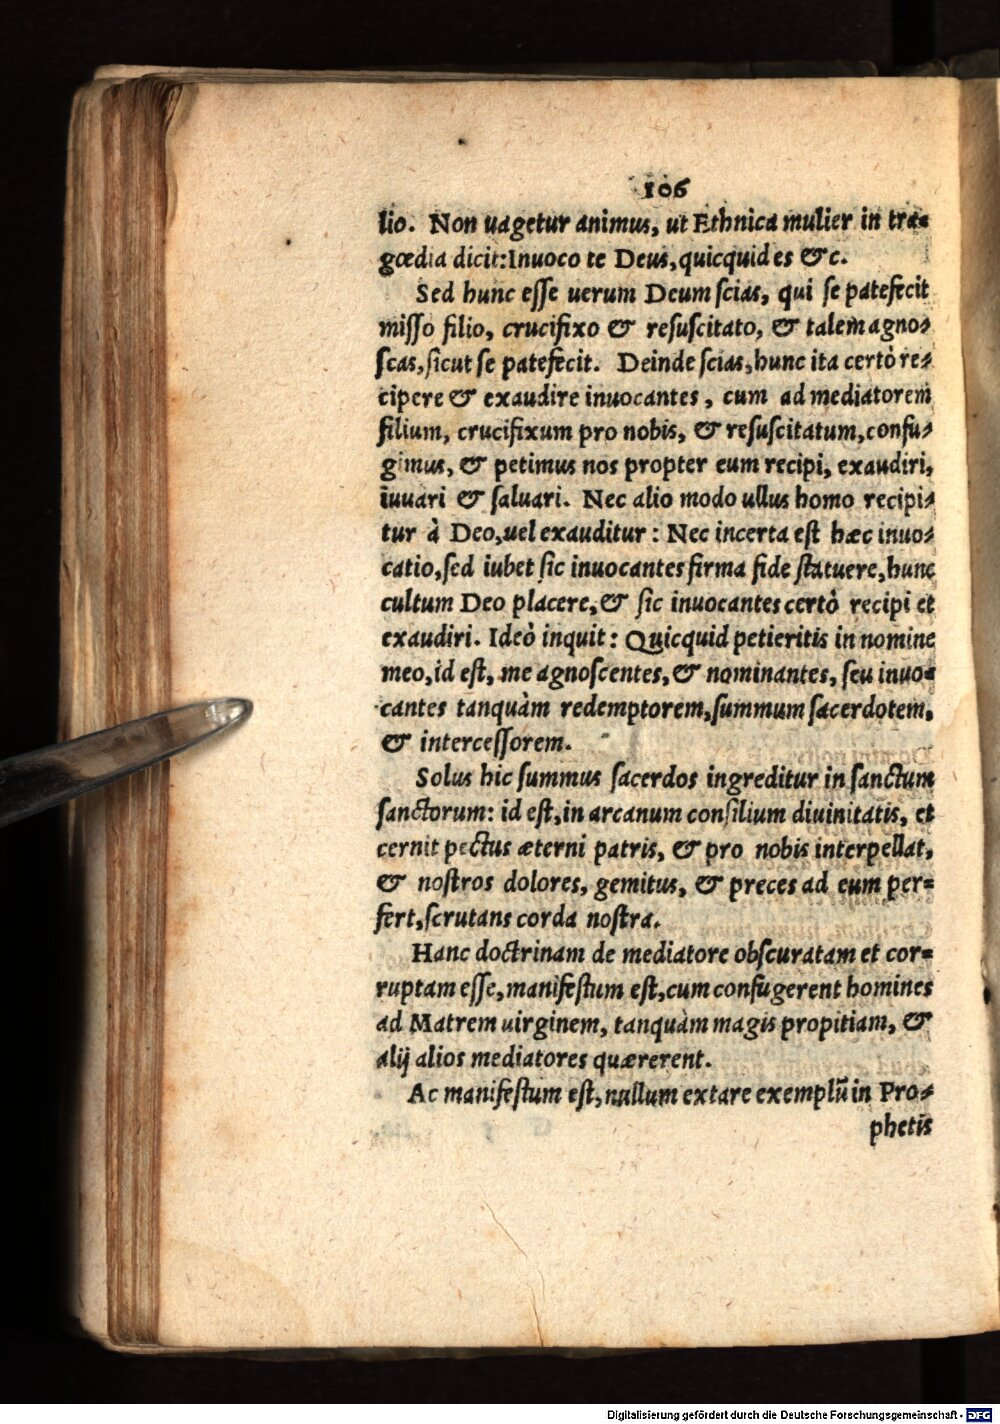 106
lio. Non uagetur animus, ut Ethnica mulier in tra-
gœdia dicit: Inuoco te Deus, quicquid es &c.
Sed hunc esse uerum Deum scias, qui se patefecit
misso filio, crucifixo & resuscitato, & talem agno-
scas, sicut se patefecit. Deinde scias, hunc ita certò re-
cipere & exaudire inuocantes, cum ad mediatorem
filium, crucifixum pro nobis, & resuscitatum, confu-
gimus, & petimus nos propter eum recipi, exaudiri,
iuuari & saluari. Nec alio modo ullus homo recipi-
tur à Deo, uel exauditur: Nec incerta est hæc inuo-
catio, sed iubet sic inuocantes firma fide statuere, hunc
cultum Deo placere, & sic inuocantes certò recipi et
exaudiri. Ideò inquit: Quicquid petieritis in nomine
meo, id est, me agnoscentes, & nominantes, seu inuo-
cantes tanquàm redemptorem, summum sacerdotem,
& intercessorem.
Solus hic summus sacerdos ingreditur in sanctum
sanctorum: id est, in arcanum consilium diuinitatis, et
cernit pectus æterni patris, & pro nobis interpellat,
& nostros dolores, gemitus, & preces ad eum per-
fert, scrutans corda nostra.
Hanc doctrinam de mediatore obscuratam et cor-
ruptam esse, manifestum est, cum confugerent homines
ad Matrem uirginem, tanquàm magis propitiam, &
alij alios mediatores quærerent.
Ac manifestum est, nullum extare exemplũ in Pro-
phetis
Digitalisierung gefördert durch die Deutsche Forschungsgemeinschaft - DFG